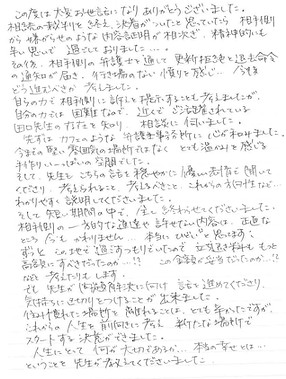 この度は大変お世話になり ありがとうございました。
相続の裁判を終え、決着がついたと思っていたら 相手側
から嫌がらせのような内容証明が相次ぎ、精神的にも
辛い思いで 過ごしておりました…。
その後、相手側の弁護士を通して 更新拒絶と退去命令
の通知が届き、行き場のない憤りを感じ… 今後
どう進むべきか 考えました。
自分の力で 相手側に 訴えを起こすことも考えましたが、
自分の力では 困難なので、近くで ご活躍されている
田口先生の 方だと知り、相談に 伺いました。
先ずは カフェのような 弁護士事務所に 心が和みました。
今までの堅い雰囲気の場所ではなく とても温かみを感じる
手作りいっぱいの空間でした。
そして、先生は こちらの話を 穏やかに 優しい表情で 聞いて
くださり、考えられること、考えるべきこと、これからの
わかりやすく 説明してくださいました。
そして 短い期間の中で、全て 終わらせてくださいました。
相手側の 一方的な 許せない内容は、正直な
ところ 今も かわりません。 本当に ひどいと思います。
ずっと この地で 過ごすつもりでいたので 立退き料を もっと
高額にすべきだったのか…!! この金額が妥当だったのか…!!
など 考えたりもします。
でも 先生が 解決に向け 話を 進めてくださり、
気持ちに 区切りをつけることが 出来ました。
住み慣れた 場所を 離れることは、とても 辛かったですが、
これからの 人生を 前向きに考え 新たな場所で
スタートする 決意ができました。
人生にとって 何が大切であるか、本当の幸せとは…
ということを 先生が 教えてくださいました。